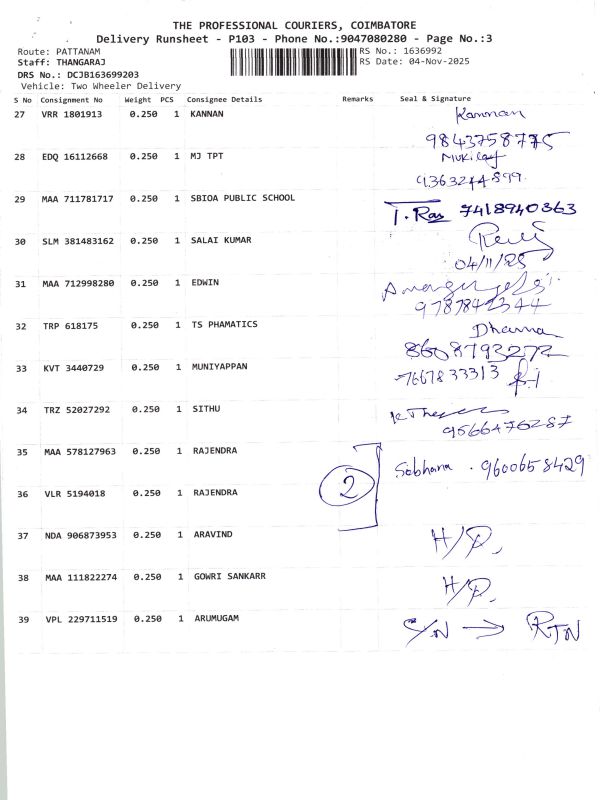 THE PROFESSIONAL COURIERS, COIMBATORE
Delivery Runsheet - P103 - Phone No.:9047080280 - Page No.:3
Route: PATTANAM RS No.: 1636992
Staff: THANGARAJ RS Date: 04-Nov-2025
DRS No.: DCJB163699203
Vehicle: Two Wheeler Delivery
S No Consignment No Weight PCS Consignee Details Remarks Seal & Signature
27 VRR 1801913 0.250 1 KANNAN Kannan
9843758775
28 EDQ 16112668 0.250 1 MJ TPT
9363244899
29 MAA 711781717 0.250 1 SBIOA PUBLIC SCHOOL T. Ras 7418940363
30 SLM 381483162 0.250 1 SALAI KUMAR
04/11/25
31 MAA 712998280 0.250 1 EDWIN
9787842344
32 TRP 618175 0.250 1 TS PHAMATICS Dharma
8608793272
33 KVT 3440729 0.250 1 MUNIYAPPAN 7667833313
34 TRZ 52027292 0.250 1 SITHU
9566476287
35 MAA 578127963 0.250 1 RAJENDRA Sobhana . 9600658429
2
36 VLR 5194018 0.250 1 RAJENDRA
37 NDA 906873953 0.250 1 ARAVIND H/D.
38 MAA 111822274 0.250 1 GOWRI SANKARR H/D.
39 VPL 229711519 0.250 1 ARUMUGAM S/N → RTN